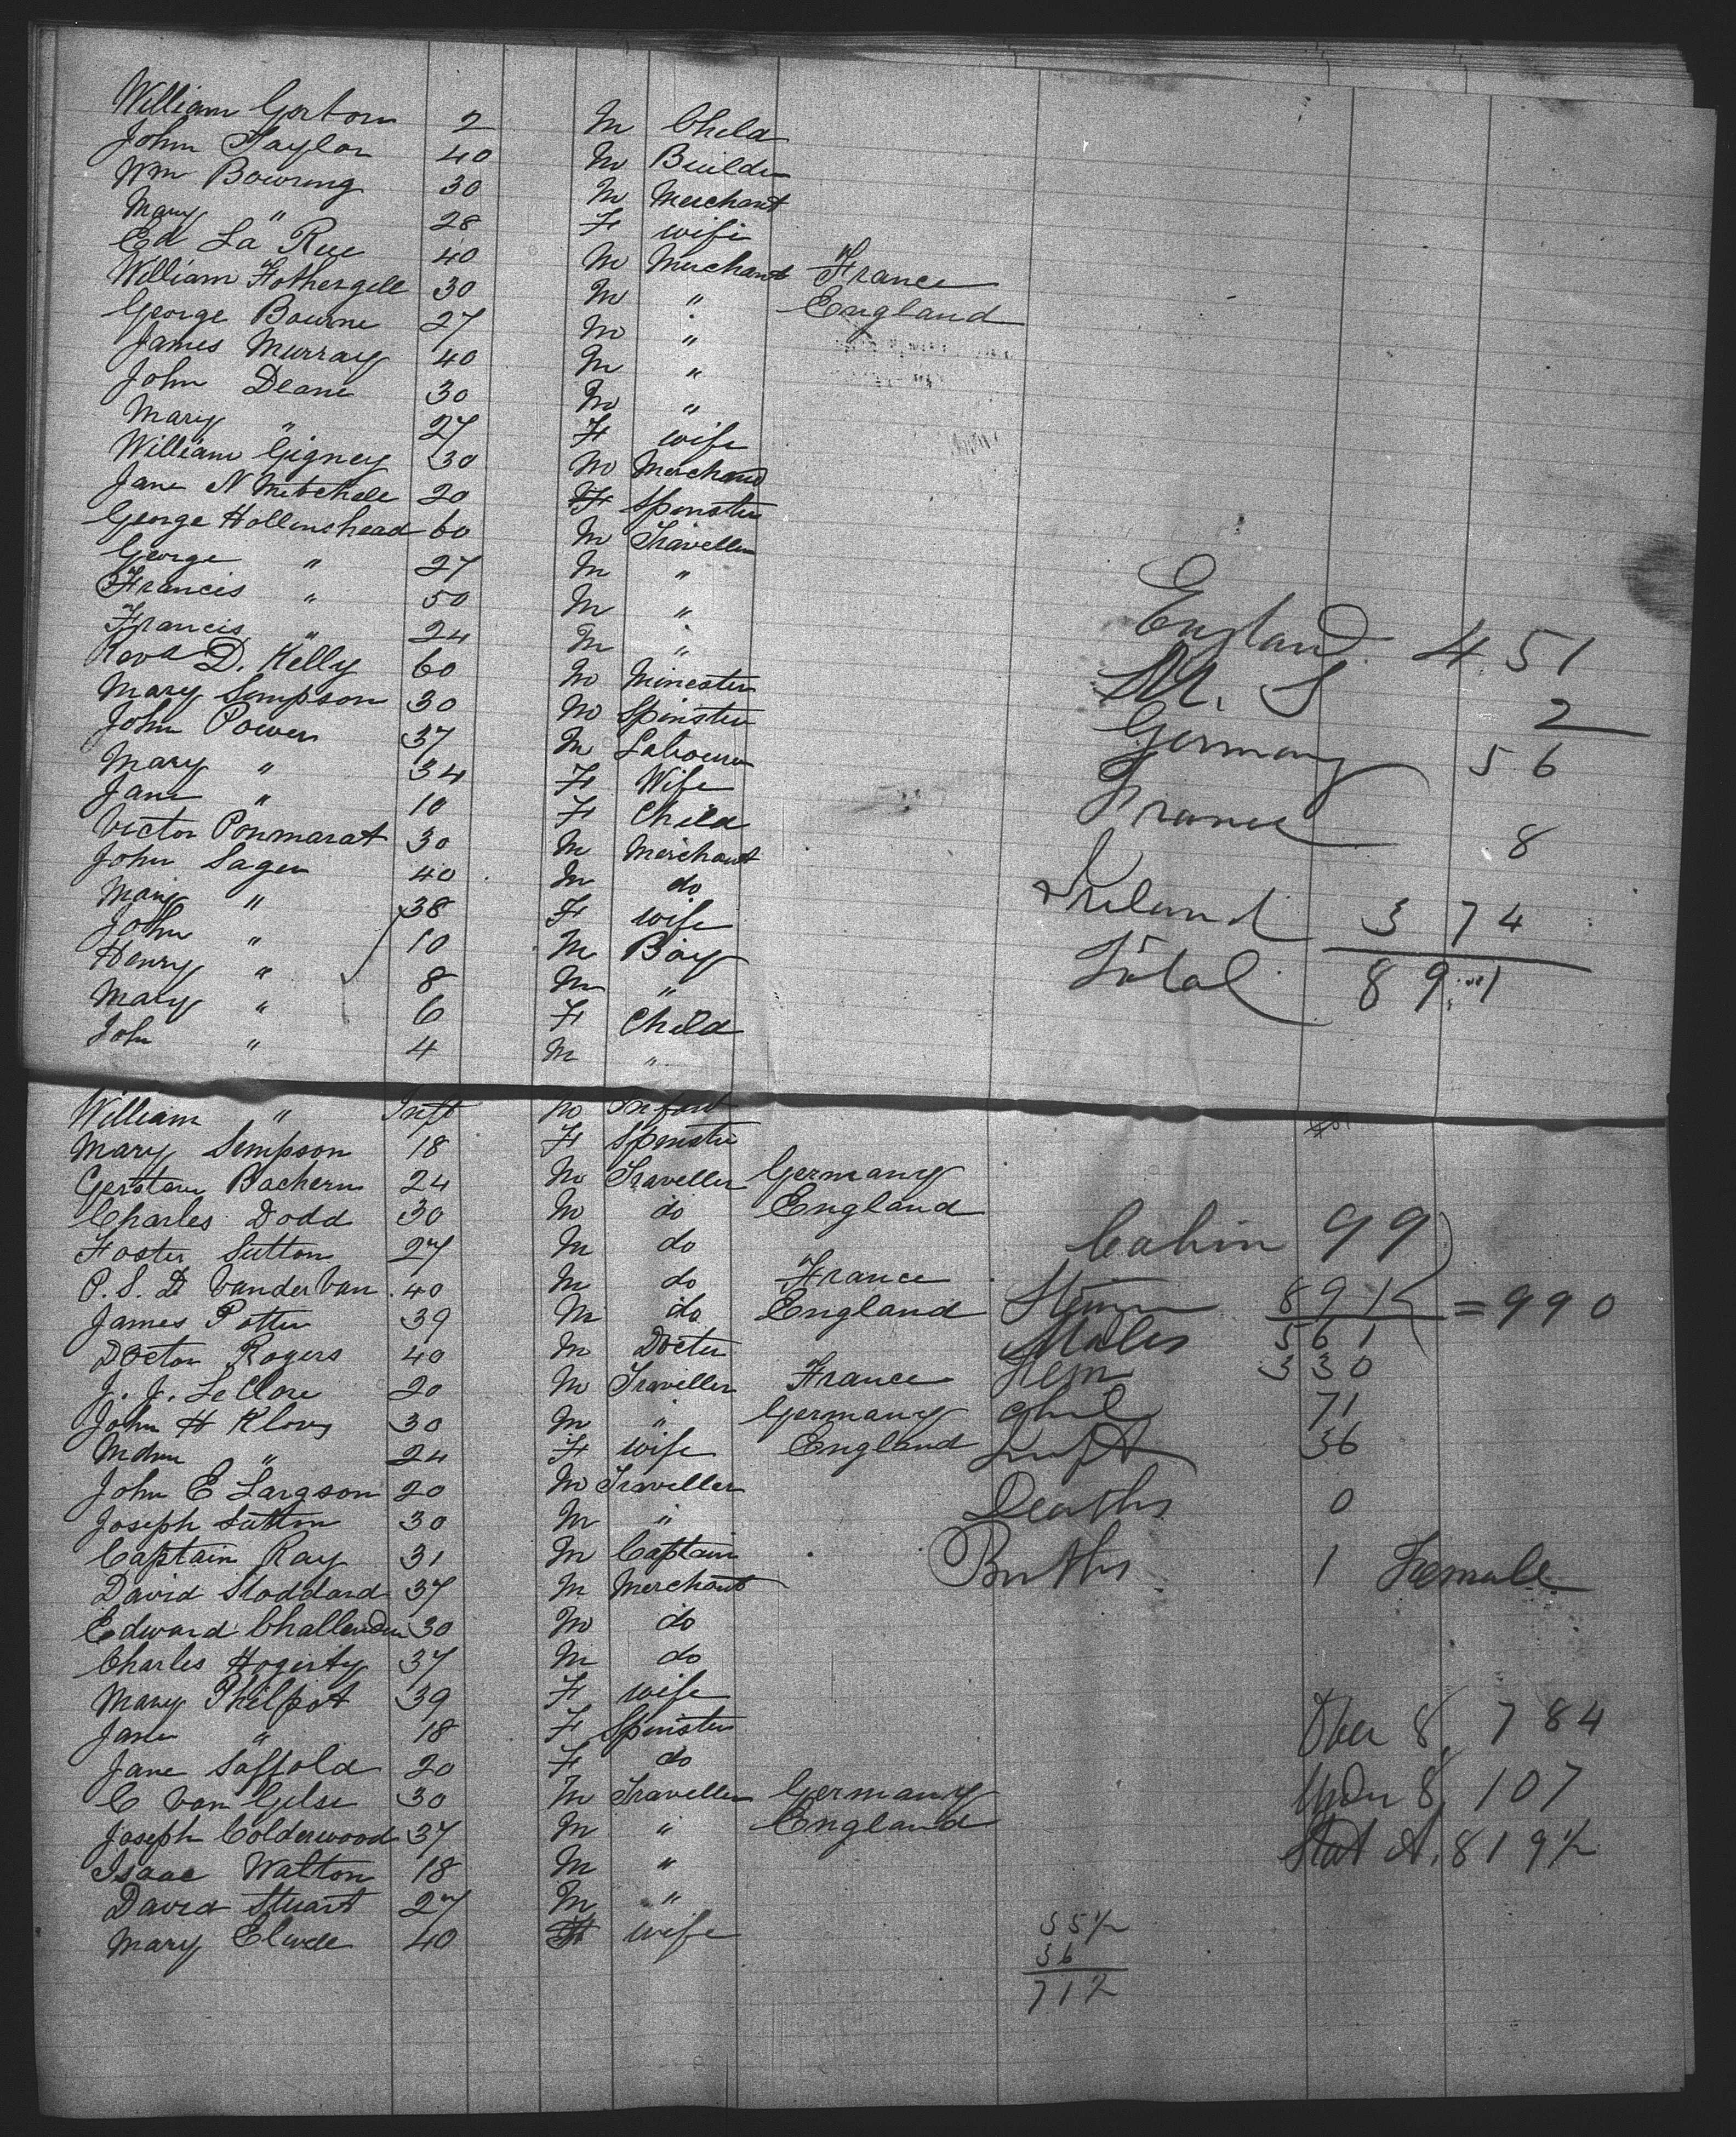 William Gorton 2 M Child
John Taylor 40 M Builder
Wm Bowring 30 M Merchant
Mary " 28 F wife
Ed La Rue 40 M Merchant France
William Fothergill 30 M " England
George Bourne 27 M "
James Murray 40 M "
John Deane 30 M "
Mary " 27 F wife
William Gigney 30 M Merchant
Jane N Mitchell 20 F Spinster
George Hollinshead 60 M Traveller
George " 27 M "
Francis " 50 M "
Francis " 24 M "
Revd D. Kelly 60 M Minester
Mary Simpson 30 M Spinster
John Power 37 M Labourer
Mary " 34 F Wife
Jane " 10 F Child
Victor Ponmarat 30 M Merchant
John Sager 40 M do
Mary " 38 F wife
John " 10 M Boy
Henry " 8 M "
Mary " 6 F Child
John " 4 M "
England 451
U. S 2
Germany 56
France 8
Ireland 374
Total 891
William " Inft M Infant
Mary Simpson 18 F Spinster
Bachern 24 M Traveller Germany
Charles Dodd 30 M do England
Foster Sutton 27 M do
P. S. D VanderVan 40 M do France
James Potter 39 M do England
Doctor Rogers 40 M Docter
J. J. LeClare 20 M Traveller France
John H Klovs 30 M " Germany
Mdm " 24 F wife England
John E Largson 20 M Traveller
Joseph Sutton 30 M "
Captain Ray 31 M Captain
David Stoddard 37 M Merchant
Edward 30 M do
Charles Hogerty 37 M do
Mary Philpot 39 F wife
Jane " 18 F Spinster
Jane Saffold 20 F do
C Van Gelse 30 M Traveller Germany
Joseph Colderwood 37 M " England
Isaac Walton 18 M "
David Stuart 27 M "
Mary 40 F wife
Cabin 99
891 = 990
Males 561
Fem 330
Chil 71
Inft 36
Deaths 0
Births 1 Female
Over 8, 784
Under 8, 107
Stat A. 819½
35½
36
71½